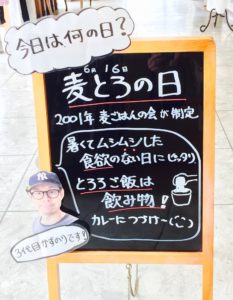 今日は何の日?
6月16日
麦とろの日
2001年 麦ごはんの会が制定
暑くてムシムシした
食欲のない日にピッタリ
とろろご飯は
飲み物!
カレーにつづけー
3代目かずのりです!